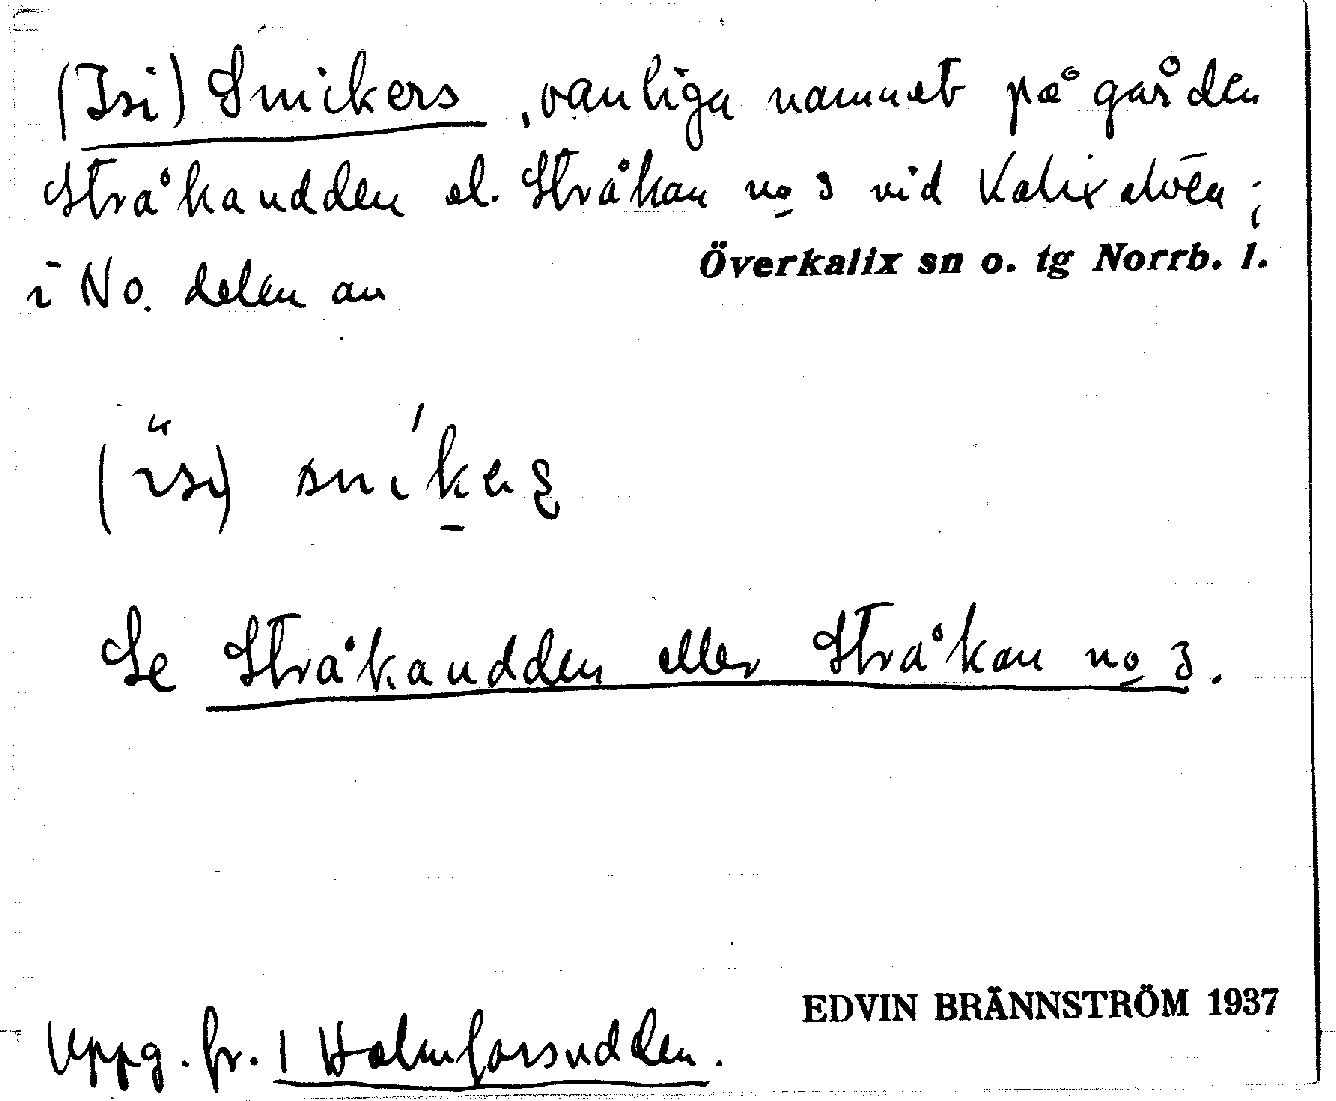 (Isi) Snikers, vanliga namnet på gården
Stråkanudden el. Stråkan no 3 vid Kalix älven;
i No. delen av
Överkalix sn o. tg Norrb. l.
(isi) snikeʂ
Se Stråkanudden eller Stråkan no 3.
EDVIN BRÄNNSTRÖM 1937
Uppg. fr. 1 Holmforsudden.